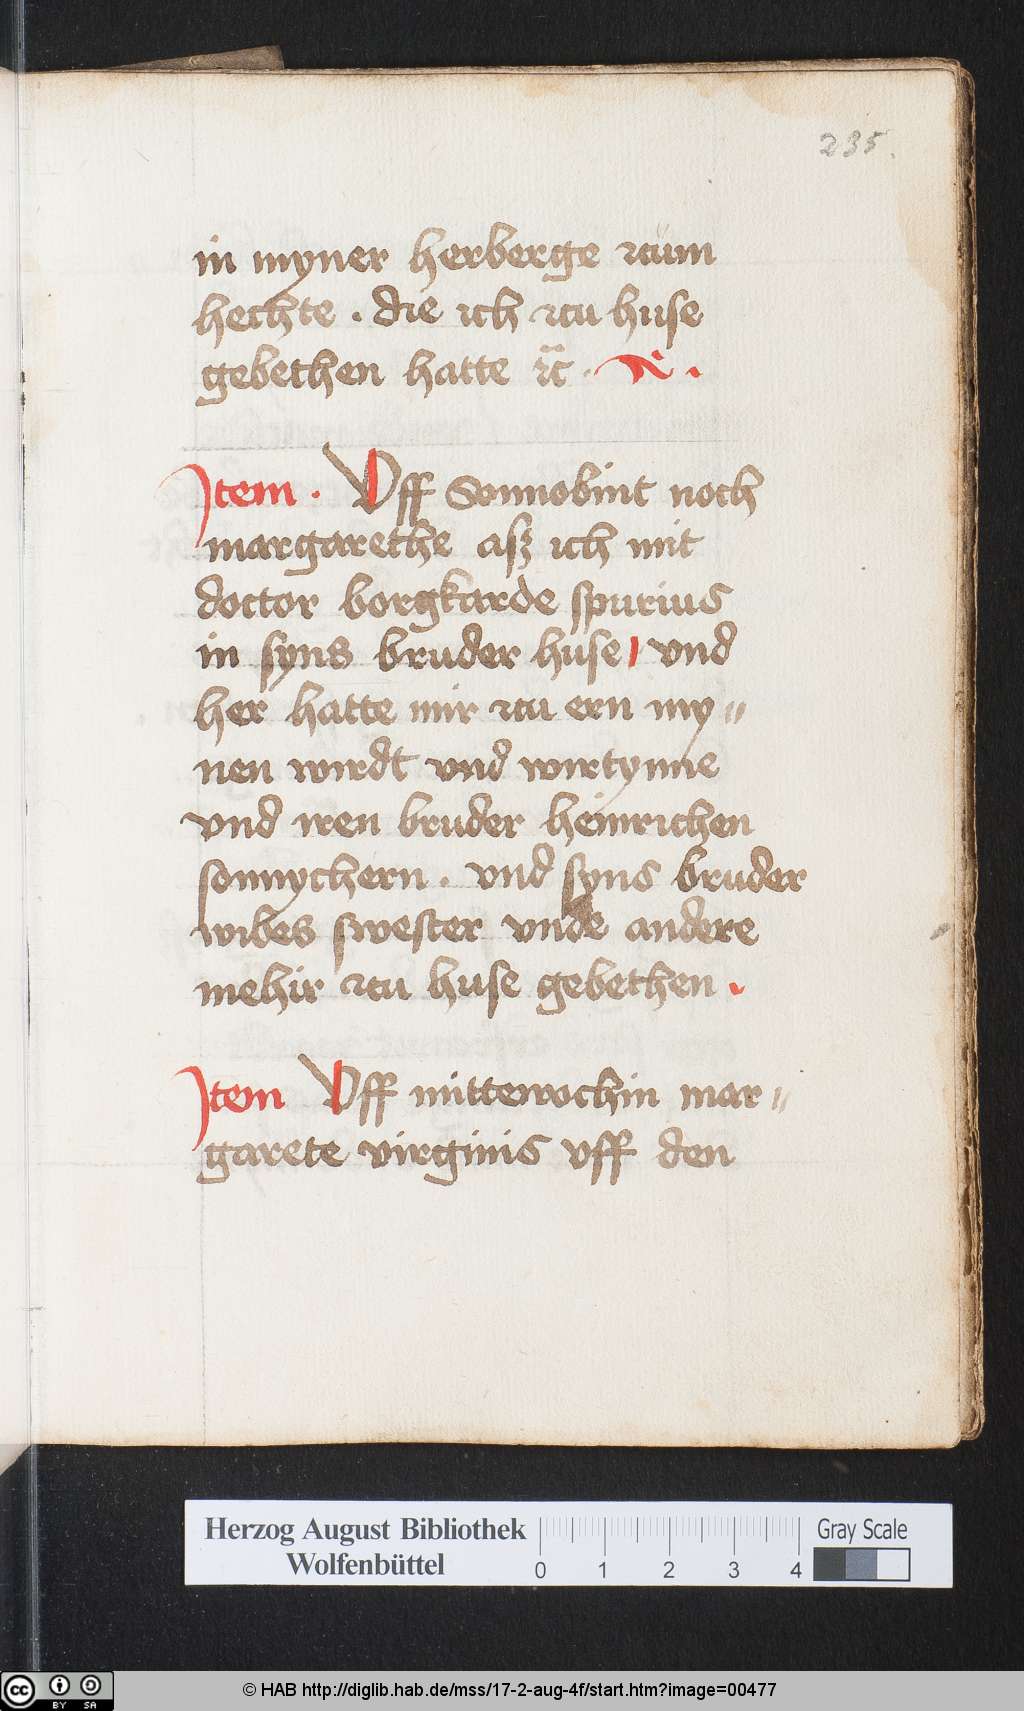 235.
in myner herberge zcum
hechte . die ich zcu huse
gebethen hatte ꝛc̃ .
Item . Vff Sonnobint noch
margarethe asz ich mit
doctor borgkarde spurius
in syns bruder huse / vnd
her hatte mir zcu ern my〃
nen wirdt vnd wirtynne
vnd iren bruder heinrichen
sonnychern . vnd syns bruder
wibes swester vnde andere
mehir zcu huse gebethen .
Item Vff mittewochin mar〃
garete virginis vff den
Herzog August Bibliothek
Wolfenbüttel
0 1 2 3 4
Gray Scale
cc BY SA
© HAB http://diglib.hab.de/mss/17-2-aug-4f/start.htm?image=00477